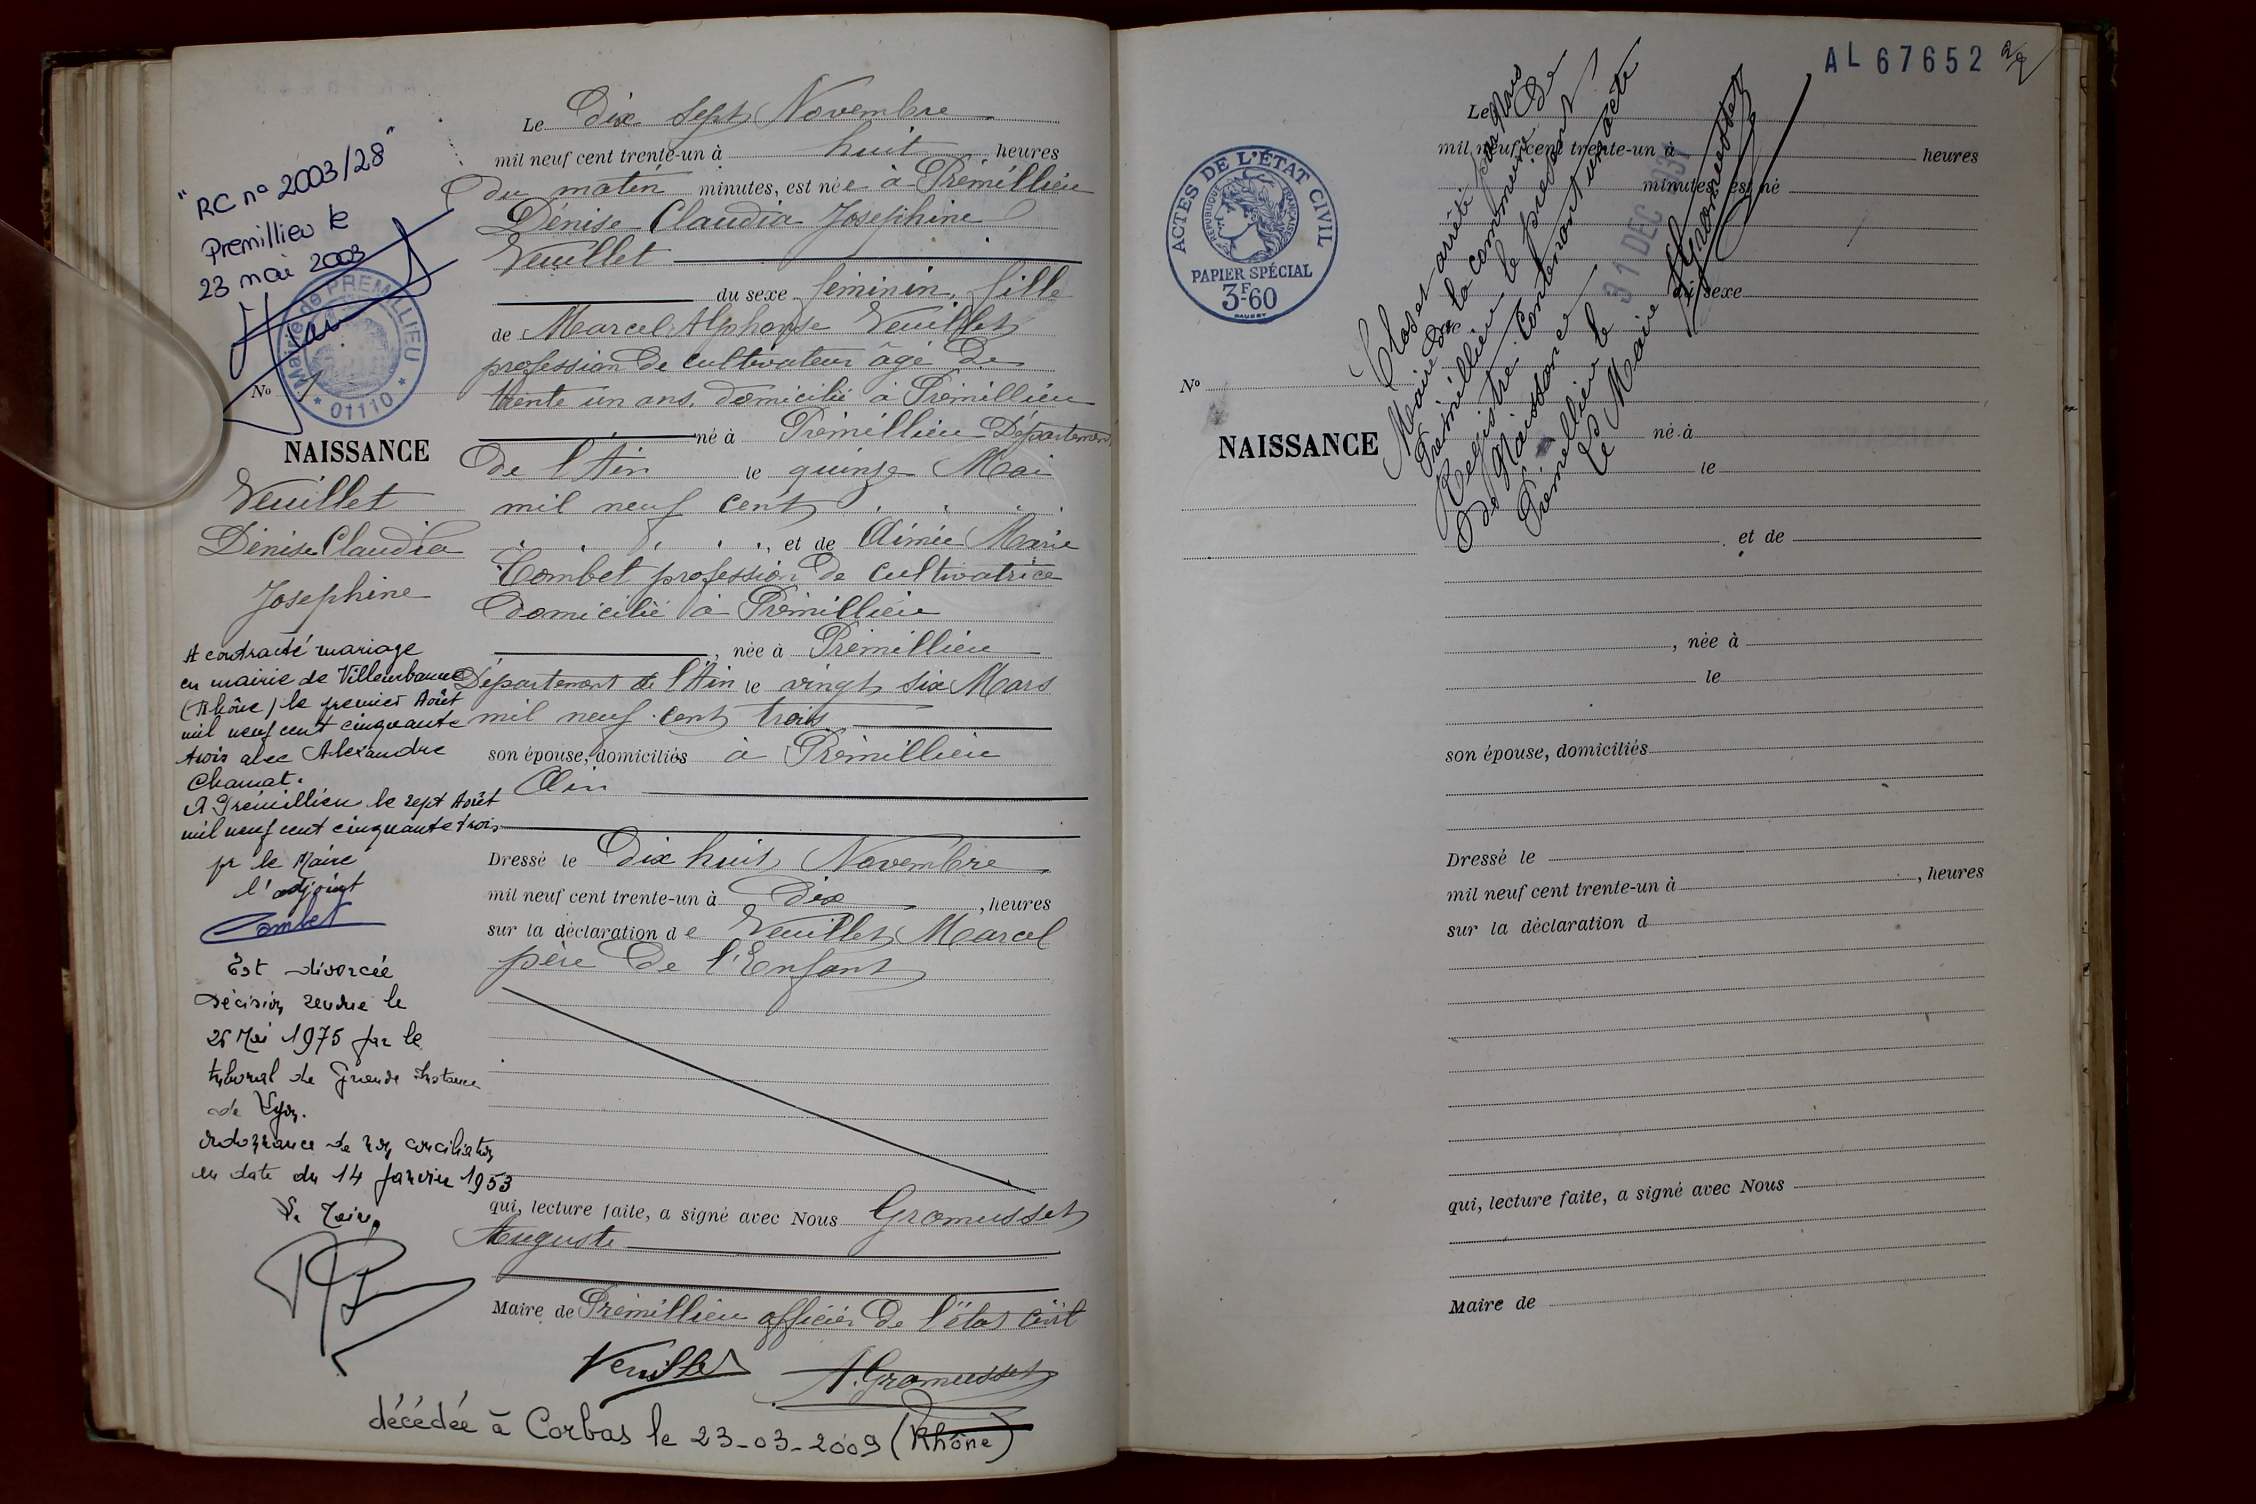 "RC nº 2003/28"
Premillieu le
23 mai 2003
Mairie de PREMILLIEU
* 01110 *
Nº 1
NAISSANCE
Veuillet
Dénise Claudia
Josephine
A contracté mariage
en mairie de Villeurbanne
(Rhône) le premier Août
mil neuf cent cinquante
trois avec Alexandre
Chamat.
A Prémillieu le sept Août
mil neuf cent cinquante trois
pr le Maire
l'adjoint
Combet
Est divorcée
décision rendue le
Mai 1975 par le
tribunal de Grande Instance
de Lyon.
ordonnance de non conciliation
en date du 14 Janvier 1953
Le Maire
Le Dix sept Novembre
mil neuf cent trente-un à huit heures
du matin minutes, est née à Prémillieu
Dénise Claudia Josephine
Veuillet
du sexe féminin, fille
de Marcel Alphonse Veuillet
profession de cultivateur âgé de
trente un ans, domicilié à Prémillieu
né à Prémillieu Département
de l'Ain le quinze Mai
mil neuf cent
, et de Aimée Marie
Combet profession de cultivatrice
domicilié à Prémillieu
, née à Prémillieu
Département de l'Ain le vingt six Mars
mil neuf cent trois
son épouse, domiciliés à Prémillieu
Ain
Dressé le Dix huit Novembre
mil neuf cent trente-un à Dix , heures
sur la déclaration de Veuillet Marcel
père de l'Enfant
qui, lecture faite, a signé avec Nous Gromusset
Auguste
Maire de Prémillieu officier de l'état civil
Veuillet A. Gromusset
décédée à Corbas le 23-03-2009 (Rhône)
AL 67652
ACTES DE L'ÉTAT CIVIL
RÉPUBLIQUE FRANÇAISE
PAPIER SPÉCIAL
3F-60
Clos et arrêté par Nous
Maire de la commune de
Prémillieu le présent
Registre contenant un acte
de Naissance
Prémillieu le 31 DEC 1931
Le Maire
Gromusset
Le
mil neuf cent trente-un à heures
minutes, est né
du sexe
de
Nº
NAISSANCE
né à
le
et de
, née à
le
son épouse, domiciliés
Dressé le
mil neuf cent trente-un à , heures
sur la déclaration d
qui, lecture faite, a signé avec Nous
Maire de